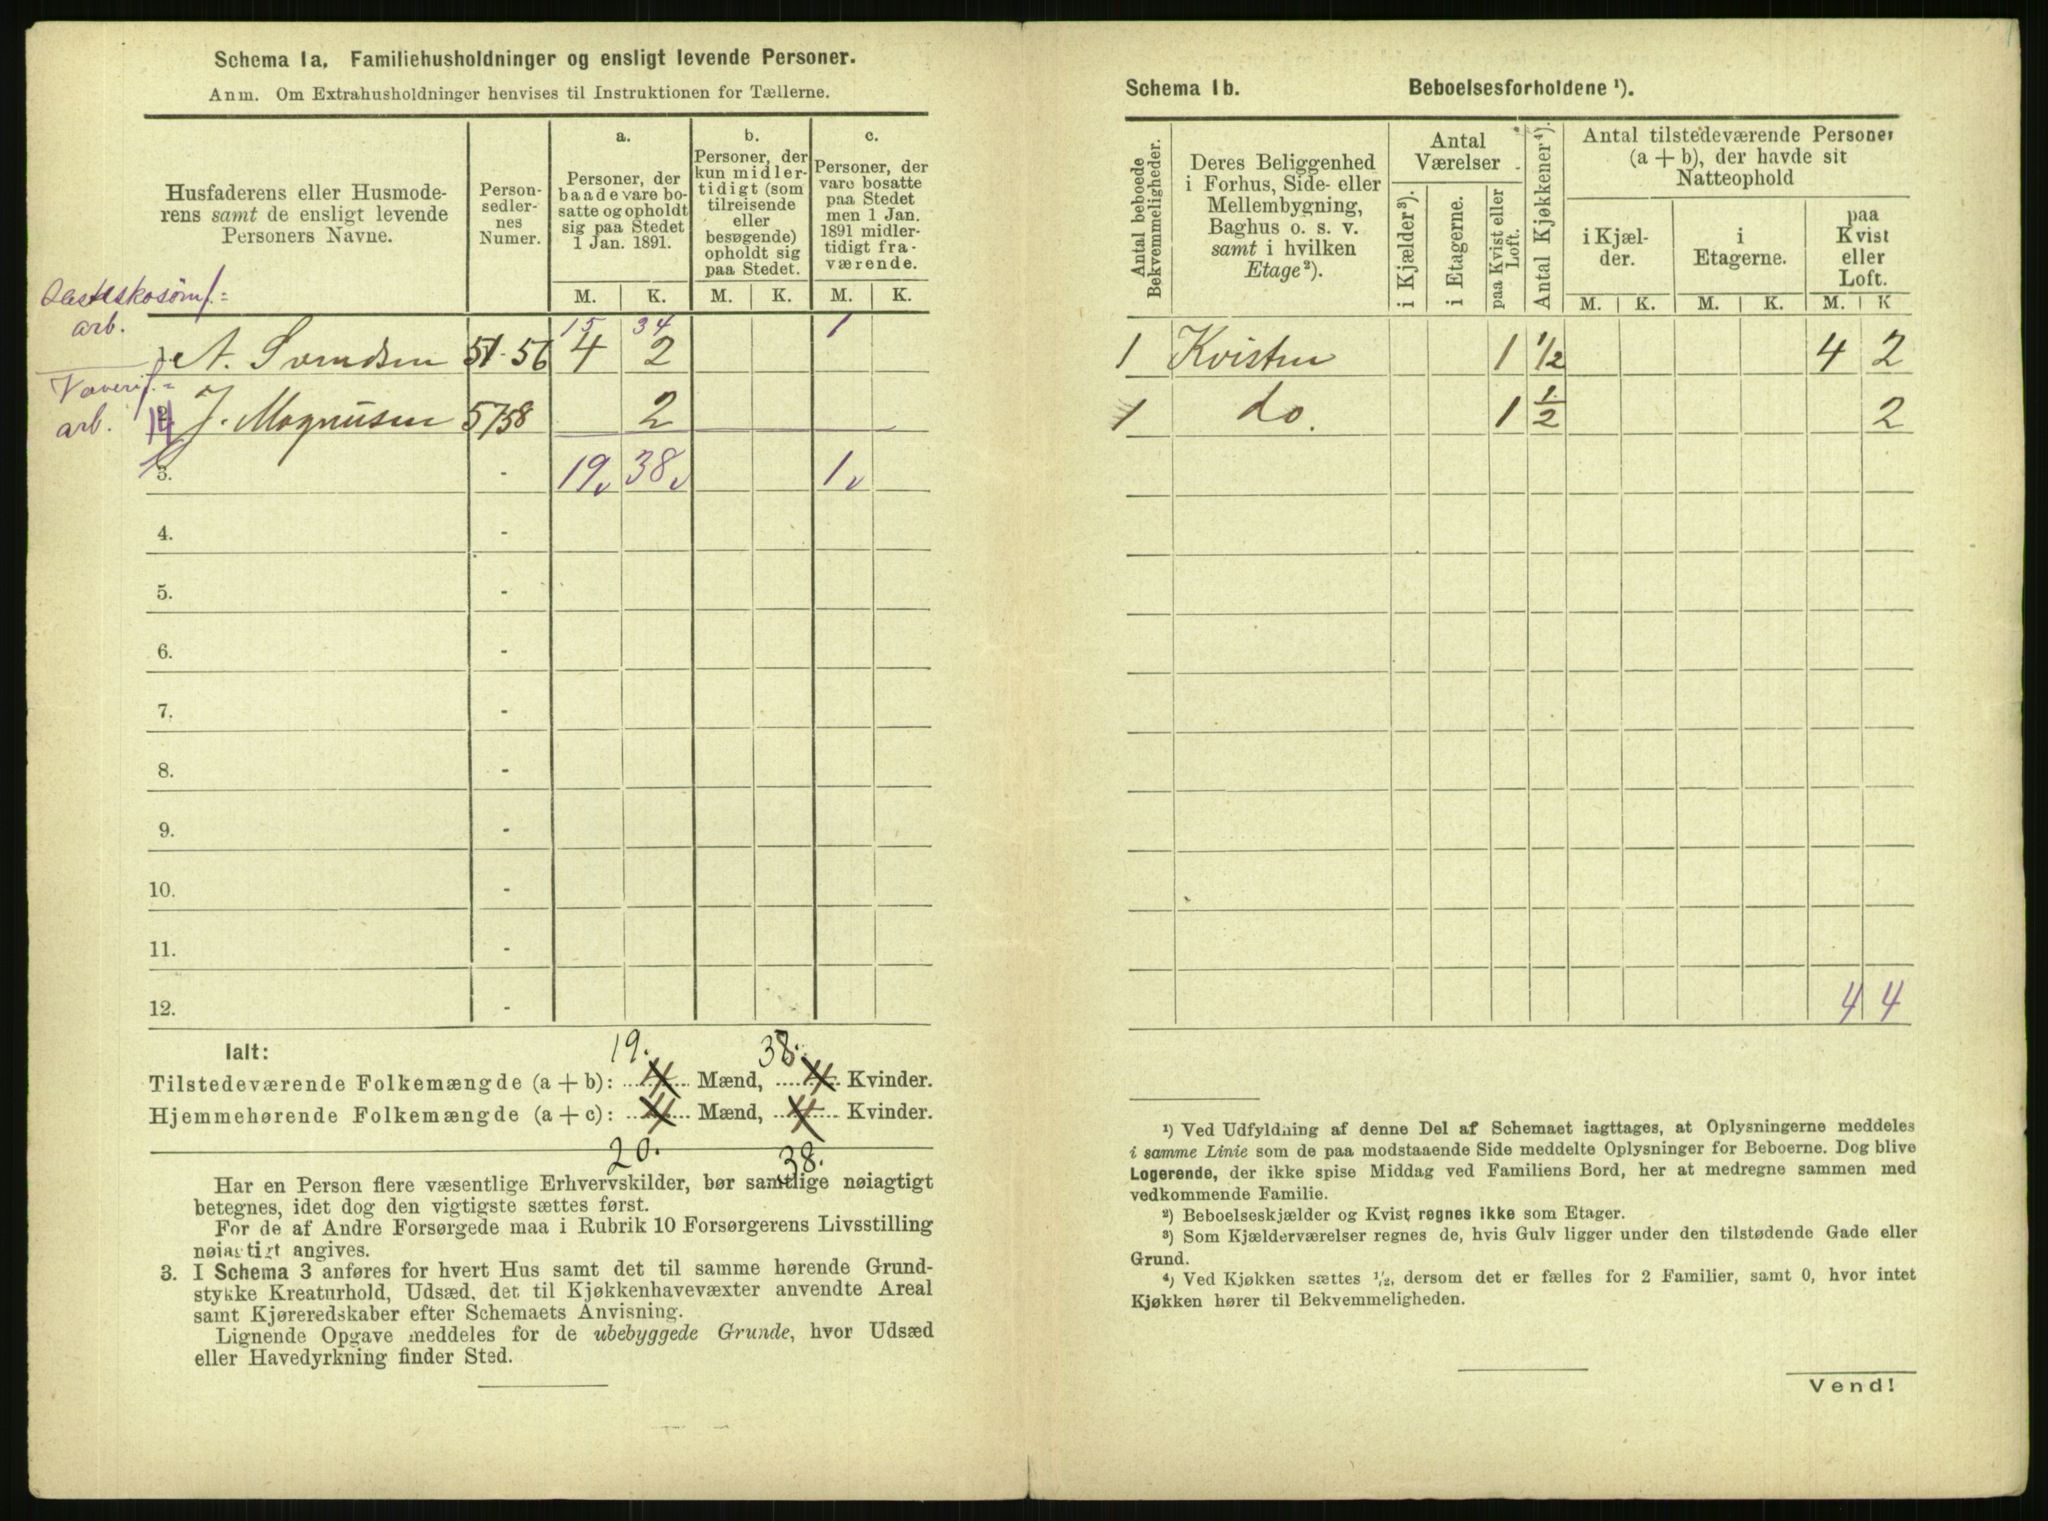 Schema 1a. Familiehusholdninger og ensligt levende Personer.
Anm. Om Extrahusholdninger henvises til Instruktionen for Tællerne.
Husfaderens eller Husmode-
rens samt de ensligt levende
Personers Navne.
Person-
sedler-
nes
Numer.
a.
Personer, der
baade vare bo-
satte og opholdt
sig paa Stedet
1 Jan. 1891.
b.
Personer, der
kun midler-
tidigt (som
tilreisende
eller
besøgende)
opholdt sig
paa Stedet.
c.
Personer, der
vare bosatte
paa Stedet
men 1 Jan.
1891 midler-
tidigt fra-
værende.
M. K. M. K. M. K.
arb.
15 34 1
A. Svendsen 51-56 4 2
arb.
J. Magnusen 57 58 2
3. - 19 38 1
4. -
5. -
6. -
7. -
8. -
9. -
10. -
11. -
12. -
Ialt:
19. 38.
Tilstedeværende Folkemængde (a + b): 4 Mænd, 4 Kvinder.
Hjemmehørende Folkemængde (a + c): 4 Mænd, 4 Kvinder.
20. 38.
Har en Person flere væsentlige Erhvervskilder, bør samtlige nøiagtigt
betegnes, idet dog den vigtigste sættes først.
For de af Andre Forsørgede maa i Rubrik 10 Forsørgerens Livsstilling
nøiagtigt angives.
3. I Schema 3 anføres for hvert Hus samt det til samme hørende Grund-
stykke Kreaturhold, Udsæd, det til Kjøkkenhavevæxter anvendte Areal
samt Kjøreredskaber efter Schemaets Anvisning.
Lignende Opgave meddeles for de ubebyggede Grunde, hvor Udsæd
eller Havedyrkning finder Sted.
Schema 1b. Beboelsesforholdene ¹).
Antal beboede
Bekvemmeligheder.
Deres Beliggenhed
i Forhus, Side- eller
Mellembygning,
Baghus o. s. v.
samt i hvilken
Etage²).
Antal
Værelser
i Kjælder³).
i Etagerne.
paa Kvist eller
Loft.
Antal Kjøkkener⁴).
Antal tilstedeværende Personer
(a + b), der havde sit
Natteophold
i Kjæl-
der.
i
Etagerne.
paa
Kvist
eller
Loft.
M. K. M. K. M. K
1 Kvisten 1 1/2 4 2
1 do. 1 1/2 2
4 4
¹) Ved Udfyldning af denne Del af Schemaet iagttages, at Oplysningerne meddeles
i samme Linie som de paa modstaaende Side meddelte Oplysninger for Beboerne. Dog blive
Logerende, der ikke spise Middag ved Familiens Bord, her at medregne sammen med
vedkommende Familie.
²) Beboelseskjælder og Kvist regnes ikke som Etager.
³) Som Kjælderværelser regnes de, hvis Gulv ligger under den tilstødende Gade eller
Grund.
⁴) Ved Kjøkken sættes ½, dersom det er fælles for 2 Familier, samt 0, hvor intet
Kjøkken hører til Bekvemmeligheden.
Vend!